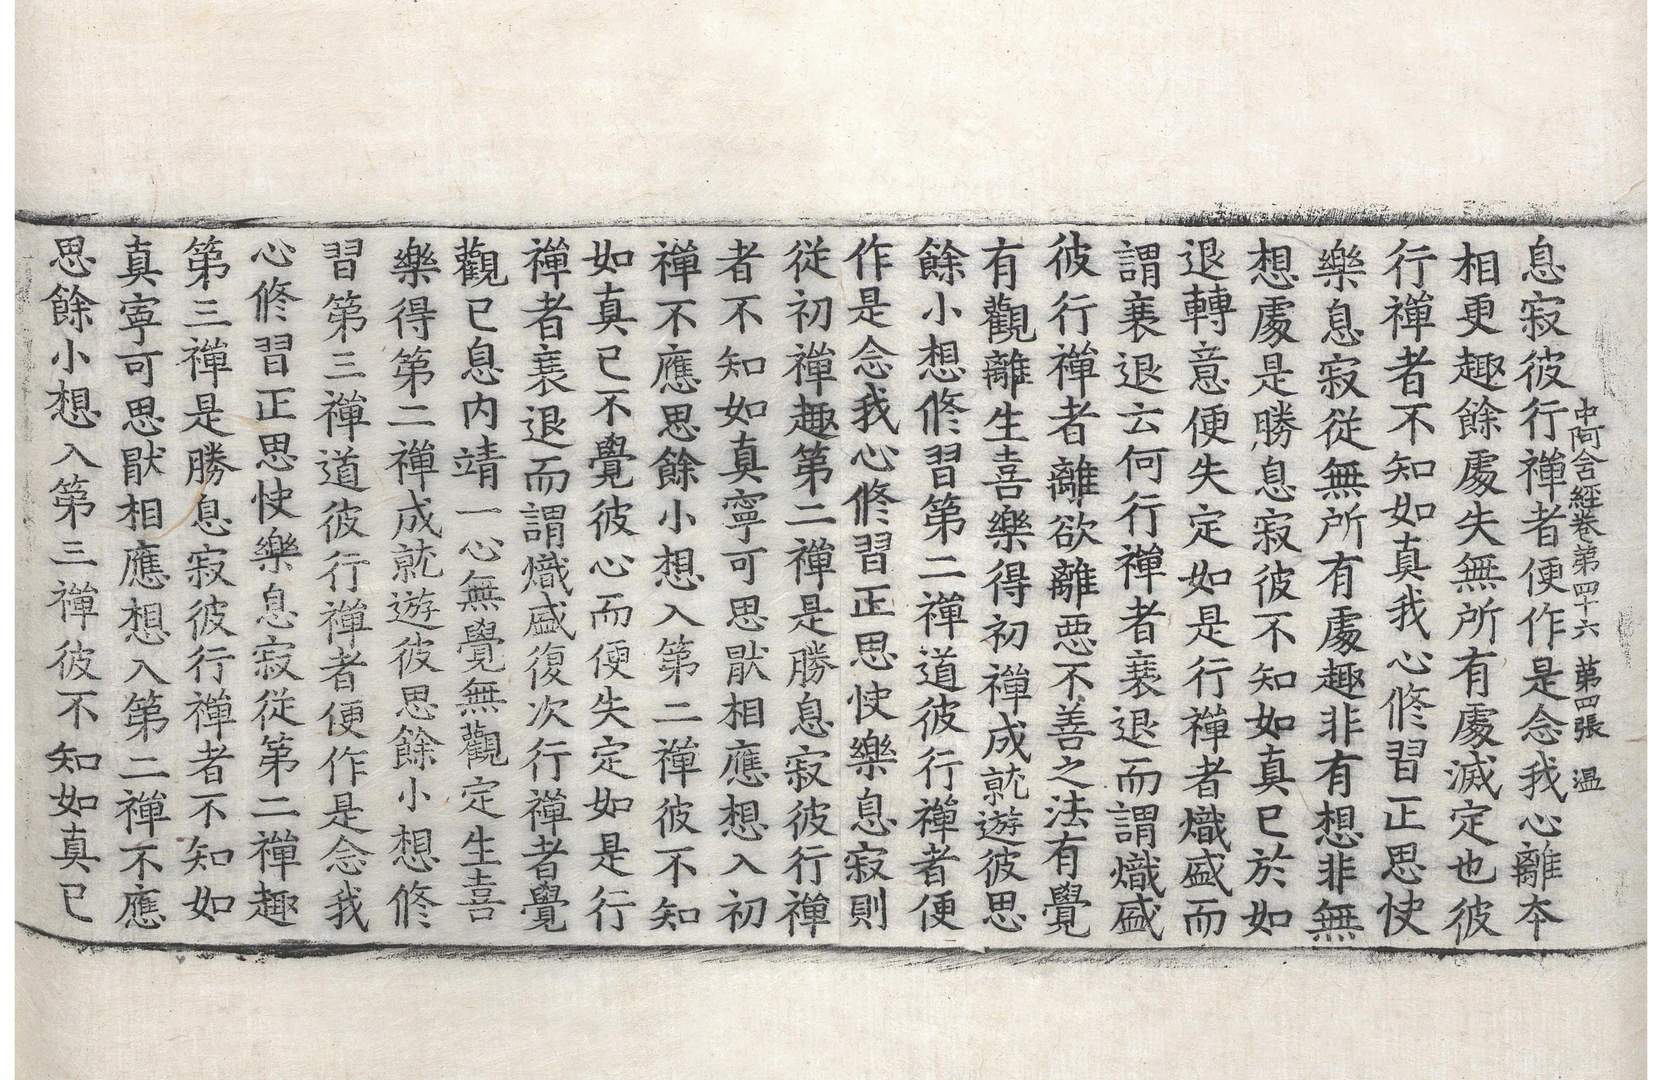 中阿含經卷第四十六 第四張 温
息寂彼行禪者便作是念我心離本
相更趣餘處失無所有處滅定也彼
行禪者不知如真我心修習正思快
樂息寂從無所有處趣非有想非無
想處是勝息寂彼不知如真已於如
退轉意便失定如是行禪者熾盛而
謂衰退云何行禪者衰退而謂熾盛
彼行禪者離欲離惡不善之法有覺
有觀離生喜樂得初禪成就遊彼思
餘小想修習第二禪道彼行禪者便
作是念我心修習正思快樂息寂則
從初禪趣第二禪是勝息寂彼行禪
者不知如真寧可思猒相應想入初
禪不應思餘小想入第二禪彼不知
如真已不覺彼心而便失定如是行
禪者衰退而謂熾盛復次行禪者覺
觀已息內靖一心無覺無觀定生喜
樂得第二禪成就遊彼思餘小想修
習第三禪道彼行禪者便作是念我
心修習正思快樂息寂從第二禪趣
第三禪是勝息寂彼行禪者不知如
真寧可思猒相應想入第二禪不應
思餘小想入第三禪彼不知如真已